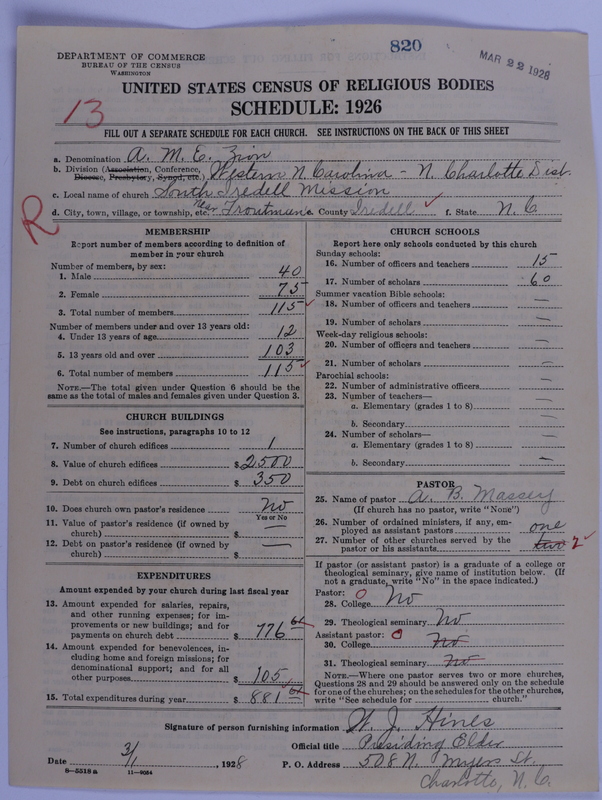 820
MAR 22 1928
DEPARTMENT OF COMMERCE
BUREAU OF THE CENSUS
WASHINGTON
UNITED STATES CENSUS OF RELIGIOUS BODIES
SCHEDULE: 1926
13
FILL OUT A SEPARATE SCHEDULE FOR EACH CHURCH. SEE INSTRUCTIONS ON THE BACK OF THIS SHEET
a. Denomination A. M. E. Zion
b. Division (Association, Conference, Diocese, Presbytery, Synod, etc.) Western N. Carolina - N. Charlotte Dist.
c. Local name of church South Iredell Mission
d. City, town, village, or township, etc. Near Troutman e. County Iredell f. State N. C.
R
MEMBERSHIP
Report number of members according to definition of
member in your church
Number of members, by sex:
1. Male 40
2. Female 75
3. Total number of members 115
Number of members under and over 13 years old:
4. Under 13 years of age 12
5. 13 years old and over 103
6. Total number of members 115
NOTE.—The total given under Question 6 should be the
same as the total of males and females given under Question 3.
CHURCH BUILDINGS
See instructions, paragraphs 10 to 12
7. Number of church edifices 1
8. Value of church edifices $2500
9. Debt on church edifices $350
10. Does church own pastor's residence No
Yes or No
11. Value of pastor's residence (if owned by
church) $ —
12. Debt on pastor's residence (if owned by
church) $ —
EXPENDITURES
Amount expended by your church during last fiscal year
13. Amount expended for salaries, repairs,
and other running expenses; for im-
provements or new buildings; and for
payments on church debt $ 776
14. Amount expended for benevolences, in-
cluding home and foreign missions; for
denominational support; and for all
other purposes $ 105
15. Total expenditures during year $ 881
CHURCH SCHOOLS
Report here only schools conducted by this church
Sunday schools:
16. Number of officers and teachers 15
17. Number of scholars 60
Summer vacation Bible schools:
18. Number of officers and teachers —
19. Number of scholars —
Week-day religious schools:
20. Number of officers and teachers —
21. Number of scholars —
Parochial schools:
22. Number of administrative officers —
23. Number of teachers—
a. Elementary (grades 1 to 8) —
b. Secondary —
24. Number of scholars—
a. Elementary (grades 1 to 8) —
b. Secondary —
PASTOR
25. Name of pastor A. B. Massey
(If church has no pastor, write "None")
26. Number of ordained ministers, if any, em-
ployed as assistant pastors one
27. Number of other churches served by the
pastor or his assistants two 2
If pastor (or assistant pastor) is a graduate of a college or
theological seminary, give name of institution below. (If
not a graduate, write "No" in the space indicated.)
Pastor: 0
28. College No
29. Theological seminary No
Assistant pastor: 0
30. College No
31. Theological seminary No
NOTE.—Where one pastor serves two or more churches,
Questions 28 and 29 should be answered only on the schedule
for one of the churches; on the schedules for the other churches,
write "See schedule for church."
Signature of person furnishing information W. J. Hines
Official title Presiding Elder
Date 3/1, 1928 P. O. Address 508 N. Myers St.
Charlotte, N. C.
8—5518 a 11—9034